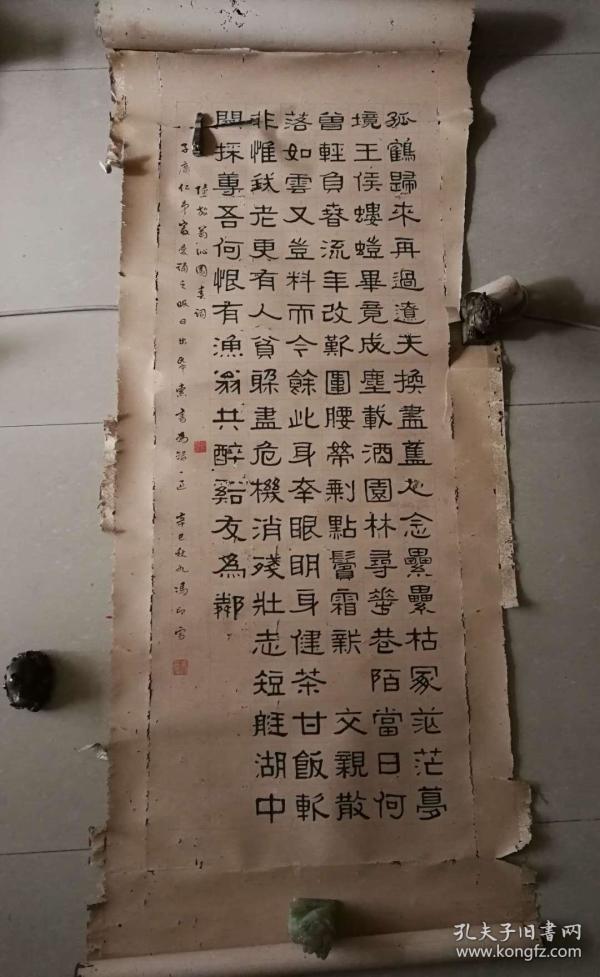 孤鶴歸來再過遼天換盡舊人念纍纍枯冢茫茫夢
境王侯螻螘畢竟成塵載酒園林尋花巷陌當日何
曾輕負春流年改歎圍腰帶剩點鬢霜新　交親散
落如雲又豈料而今餘此身幸眼明身健茶甘飯軟
非惟我老更有人貧躲盡危機消殘壯志短艇湖中
閒採蓴吾何恨有漁翁共醉谿友為鄰
陸放翁沁園春詞
子康仁弟之暇日出帋索書為 辛巳秋九馮印雪
孔夫子旧书网
www.kongfz.com